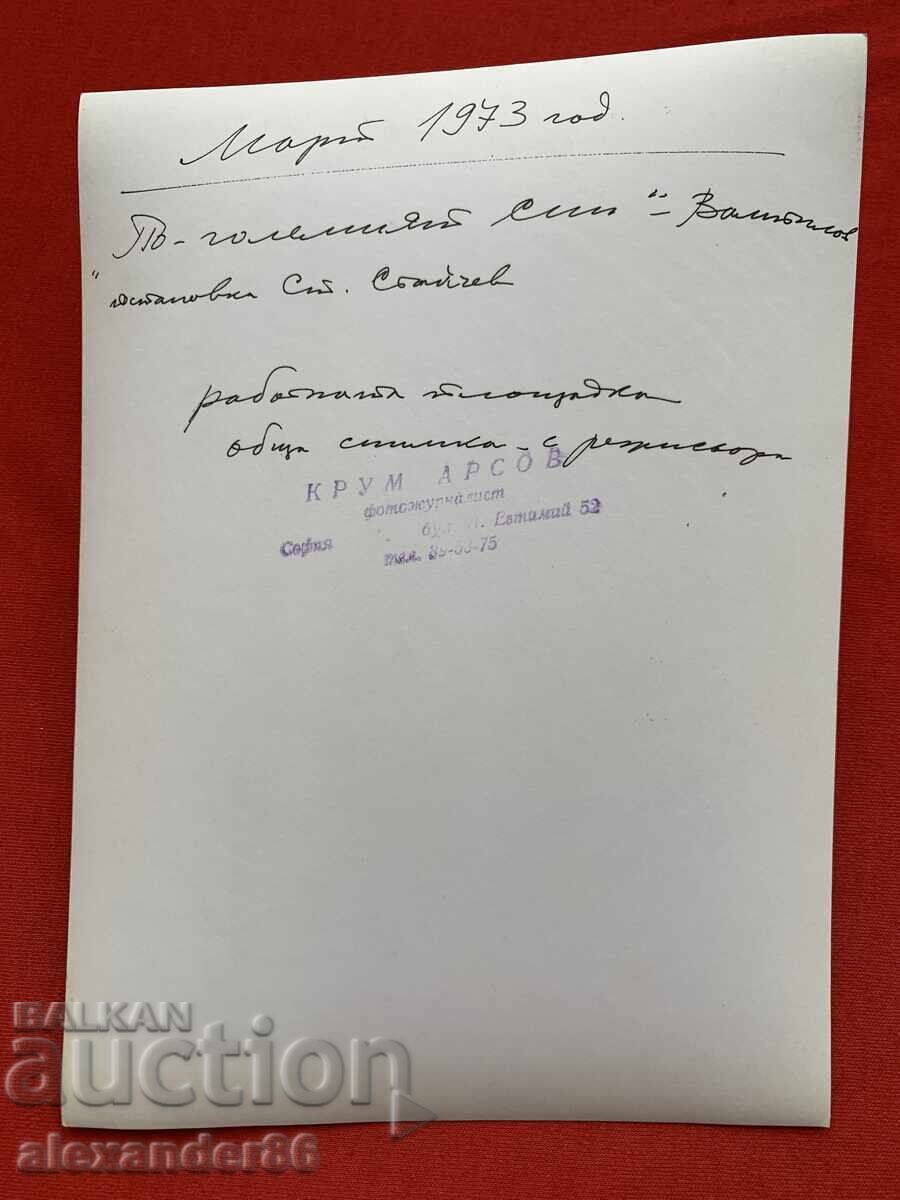 Март 1973 год.
"По-големият син" - Вампилов
постановка Ст. Стайчев
работната площадка
обща снимка - с режисьора
КРУМ АРСОВ
фотожурналист
София бул. П. Евтимий 52
тел.
BALKAN
auction
alexander86